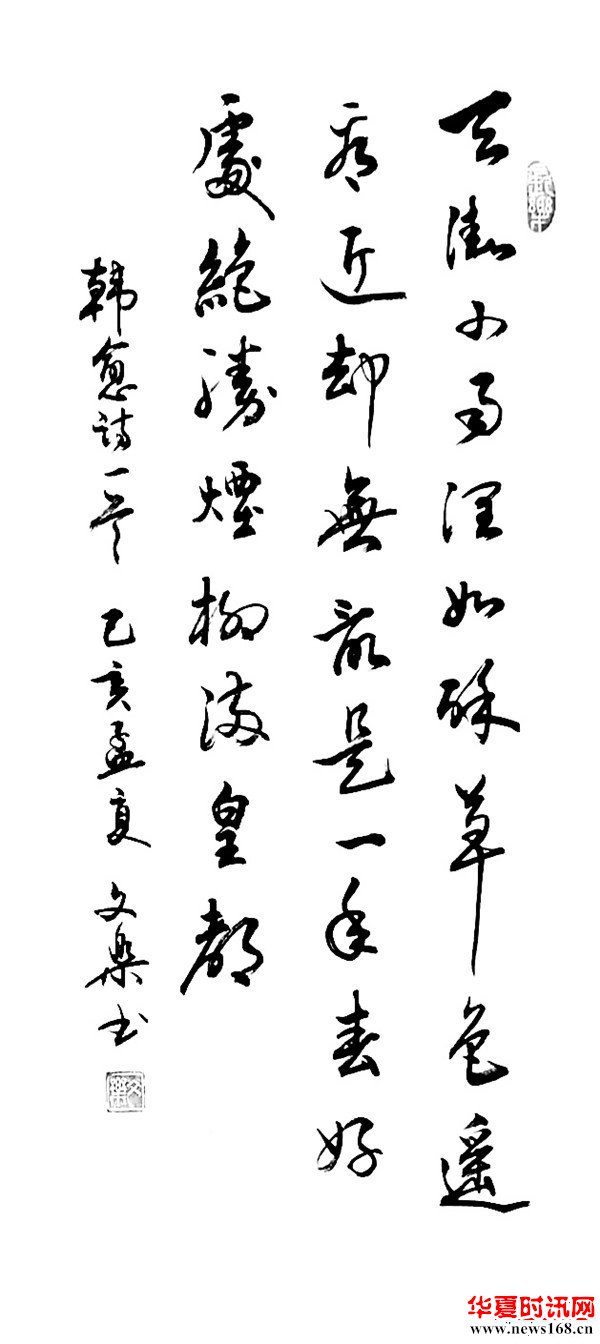 天街小雨润如酥草色遥
看近却無最是一年春好
處絕勝煙柳满皇都
韩愈诗一首 己亥孟夏 文樂书
华夏时讯网
www.news168.cn